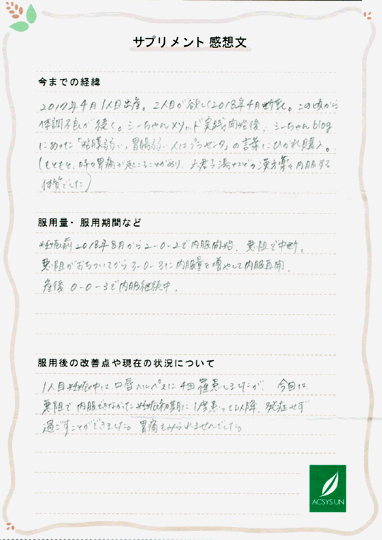 サプリメント 感想文
今までの経緯
2017年4月1人目出産。2人目が欲しく2018年4月断乳。この頃から
体調不良が続く。ミーちゃんメソッド実践開始後、ミーちゃんblog
にあった「粘膜弱い、胃腸弱い人はプラセンタ」の言葉にひかれ購入。
(もともと、時々胃痛が起こることがあり、六君子湯などの漢方薬を内服する
体質でした)
服用量・服用期間など
妊娠前2018年8月から2-0-2で内服開始、悪阻で中断。
悪阻がおちついてから3-0-3に内服量を増やして内服再開。
産後 0-0-3で内服継続中。
服用後の改善点や現在の状況について
1人目妊娠中は口唇ヘルペスに4回罹患しましたが、今回は
悪阻で内服できなかった妊娠初期に1度患って以降、発症せず
過ごすことができました。胃痛もみられませんでした。
ACSYSUN